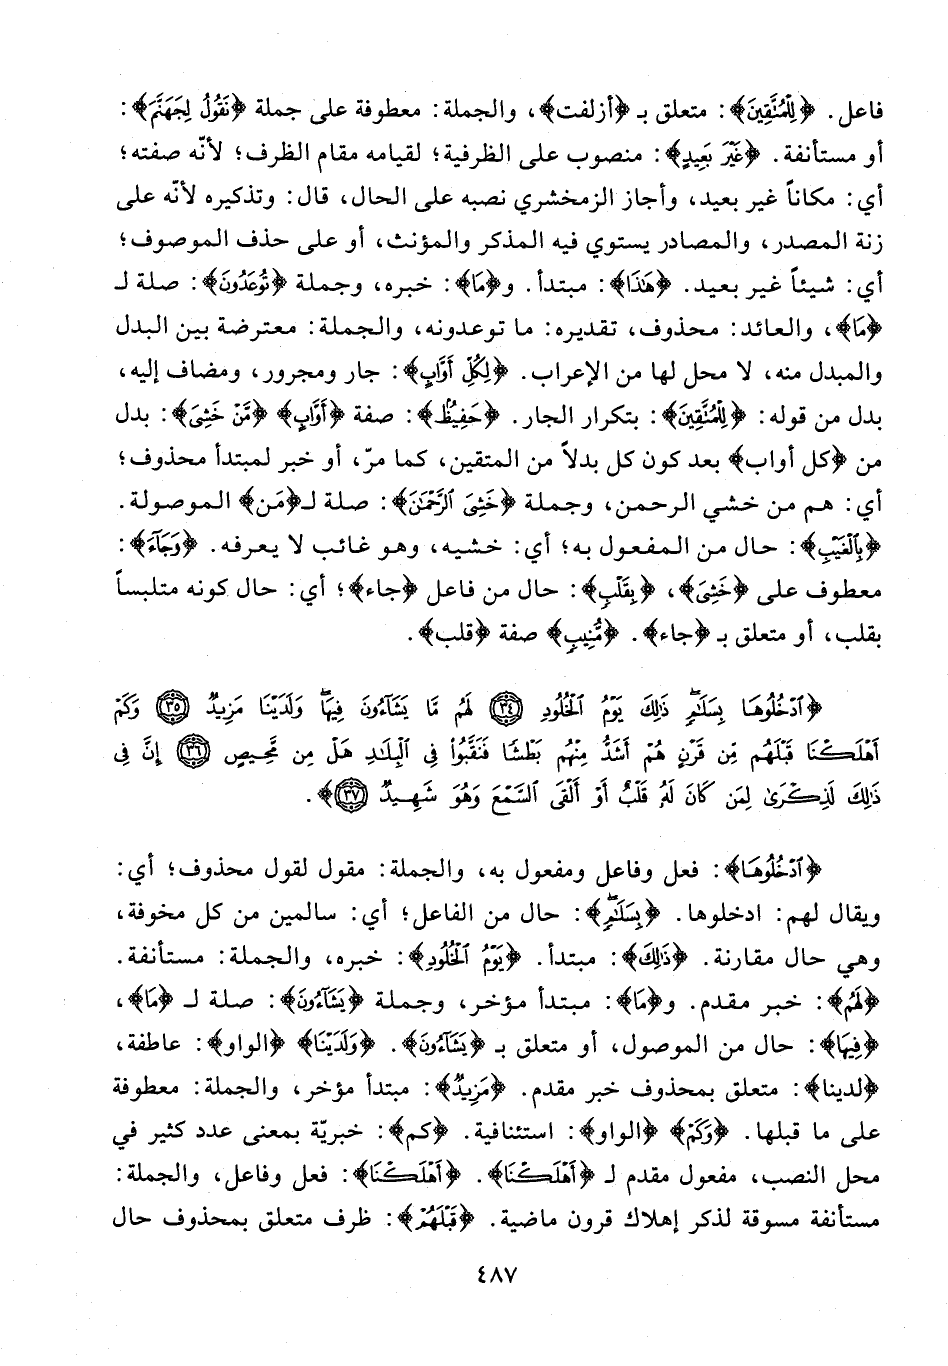 فاعل. ﴿لِلْمُتَّقِينَ﴾: متعلق بـ ﴿أزلفت﴾، والجملة: معطوفة على جملة ﴿نَقُولُ لِجَهَنَّمَ﴾:
أو مستأنفة. ﴿غَيْرَ بَعِيدٍ﴾: منصوب على الظرفية؛ لقيامه مقام الظرف؛ لأنّه صفته؛
أي: مكاناً غير بعيد، وأجاز الزمخشري نصبه على الحال، قال: وتذكيره لأنّه على
زنة المصدر، والمصادر يستوي فيه المذكر والمؤنث، أو على حذف الموصوف؛
أي: شيئاً غير بعيد. ﴿هَٰذَا﴾: مبتدأ. و﴿مَا﴾: خبره، وجملة ﴿تُوعَدُونَ﴾: صلة لـ
﴿مَا﴾، والعائد: محذوف، تقديره: ما توعدونه، والجملة: معترضة بين البدل
والمبدل منه، لا محل لها من الإعراب. ﴿لِكُلِّ أَوَّابٍ﴾: جار ومجرور، ومضاف إليه،
بدل من قوله: ﴿لِلْمُتَّقِينَ﴾: بتكرار الجار. ﴿حَفِيظٍ﴾: صفة ﴿أَوَّابٍ﴾ ﴿مَّنْ خَشِيَ﴾: بدل
من ﴿كل أواب﴾ بعد كون كل بدلاً من المتقين، كما مرّ، أو خبر لمبتدأ محذوف؛
أي: هم من خشي الرحمن، وجملة ﴿خَشِيَ ٱلرَّحْمَٰنَ﴾: صلة لـ﴿مَن﴾ الموصولة.
﴿بِٱلْغَيْبِ﴾: حال من المفعول به؛ أي: خشيه، وهو غائب لا يعرفه. ﴿وَجَآءَ﴾:
معطوف على ﴿خَشِيَ﴾، ﴿بِقَلْبٍ﴾: حال من فاعل ﴿جاء﴾؛ أي: حال كونه متلبساً
بقلب، أو متعلق بـ ﴿جاء﴾. ﴿مُّنِيبٍ﴾ صفة ﴿قلب﴾.
﴿ٱدْخُلُوهَا بِسَلَٰمٍ ۖ ذَٰلِكَ يَوْمُ ٱلْخُلُودِ ٣٤ لَهُم مَّا يَشَآءُونَ فِيهَا ۖ وَلَدَيْنَا مَزِيدٌ ٣٥ وَكَمْ
أَهْلَكْنَا قَبْلَهُم مِّن قَرْنٍ هُمْ أَشَدُّ مِنْهُم بَطْشًا فَنَقَّبُوا۟ فِى ٱلْبِلَٰدِ هَلْ مِن مَّحِيصٍ ٣٦ إِنَّ فِى
ذَٰلِكَ لَذِكْرَىٰ لِمَن كَانَ لَهُۥ قَلْبٌ أَوْ أَلْقَى ٱلسَّمْعَ وَهُوَ شَهِيدٌ ٣٧﴾.
﴿ٱدْخُلُوهَا﴾: فعل وفاعل ومفعول به، والجملة: مقول لقول محذوف؛ أي:
ويقال لهم: ادخلوها. ﴿بِسَلَٰمٍ ۖ﴾: حال من الفاعل؛ أي: سالمين من كل مخوفة،
وهي حال مقارنة. ﴿ذَٰلِكَ﴾: مبتدأ. ﴿يَوْمُ ٱلْخُلُودِ﴾: خبره، والجملة: مستأنفة.
﴿لَهُم﴾: خبر مقدم. و﴿مَا﴾: مبتدأ مؤخر، وجملة ﴿يَشَآءُونَ﴾: صلة لـ ﴿مَا﴾،
﴿فِيهَا﴾: حال من الموصول، أو متعلق بـ ﴿يَشَآءُونَ﴾. ﴿وَلَدَيْنَا﴾ ﴿الواو﴾: عاطفة،
﴿لدينا﴾: متعلق بمحذوف خبر مقدم. ﴿مَزِيدٌ﴾: مبتدأ مؤخر، والجملة: معطوفة
على ما قبلها. ﴿وَكَمْ﴾ ﴿الواو﴾: استئنافية. ﴿كم﴾: خبريّة بمعنى عدد كثير في
محل النصب، مفعول مقدم لـ ﴿أَهْلَكْنَا﴾. ﴿أَهْلَكْنَا﴾: فعل وفاعل، والجملة:
مستأنفة مسوقة لذكر إهلاك قرون ماضية. ﴿قَبْلَهُمْ﴾: ظرف متعلق بمحذوف حال
٤٨٧